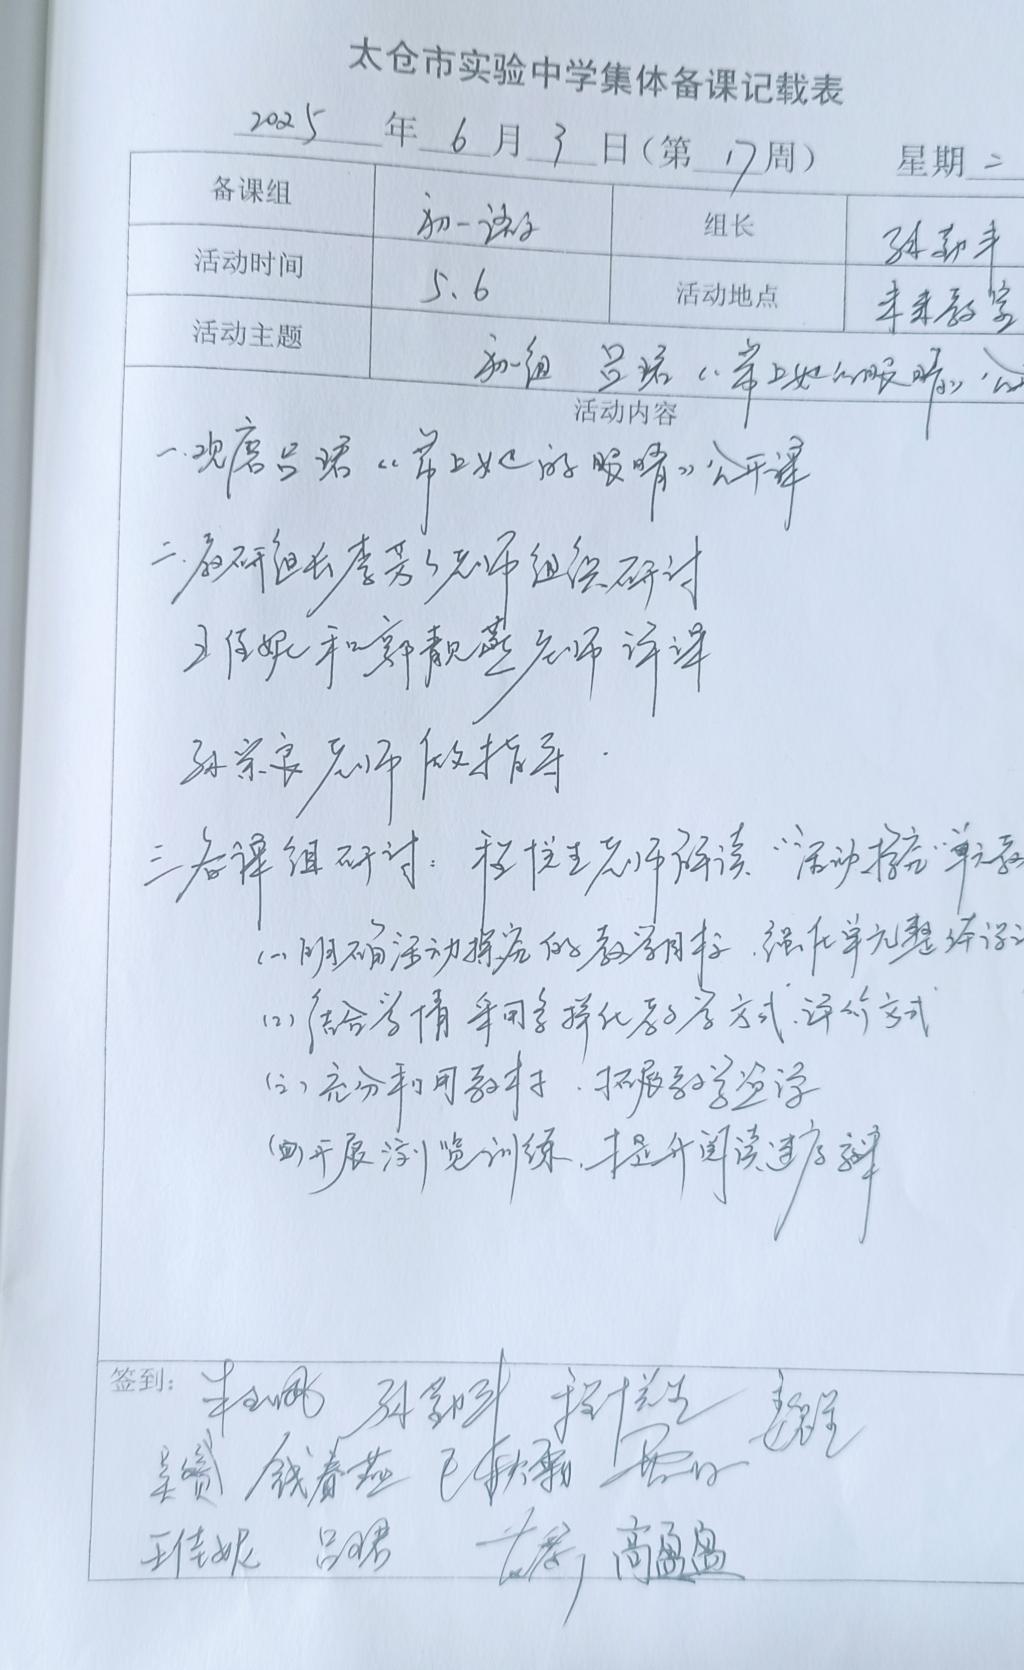 太仓市实验中学集体备课记载表
2025年6月3日(第17周) 星期二
备课组 初一语文 组长 孙勤丰
活动时间 5.6 活动地点 未来教室
活动主题 初一组 吕珺《带上她的眼睛》公
活动内容
一.观摩吕珺《带上她的眼睛》公开课
二.教研组长李芳老师组织研讨
王佳妮和郭靓燕老师评课
孙宗良老师做指导.
三备课组研讨:程悦生老师解读“活动·探究”单元教
(一)明确活动探究的教学目标,强化单元整体设计
(二)结合学情 采用多样化教学方式、评价方式
(三)充分利用教材,拓展教学资源
(四)开展浏览训练,提升阅读速度效率
签到: 孙勤丰 程悦生
吴赟 钱春燕
王佳妮 吕珺 高盈盈